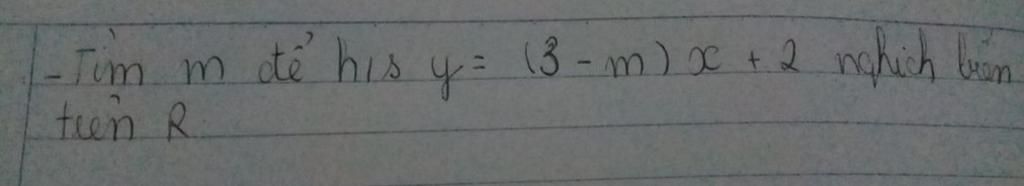 - Tìm m để h/s y = (3 - m) x + 2 nghịch biến
trên R